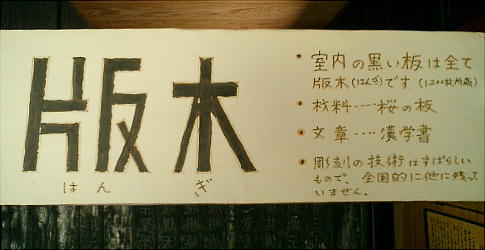 版木
はんぎ
・室内の黒い板は全て
版木(はんぎ)です(1,200枚所蔵)
・材料‥‥桜の板
・文章‥‥漢学書
・彫刻の技術はすばらしい
もので、全国的に他に残って
いません。